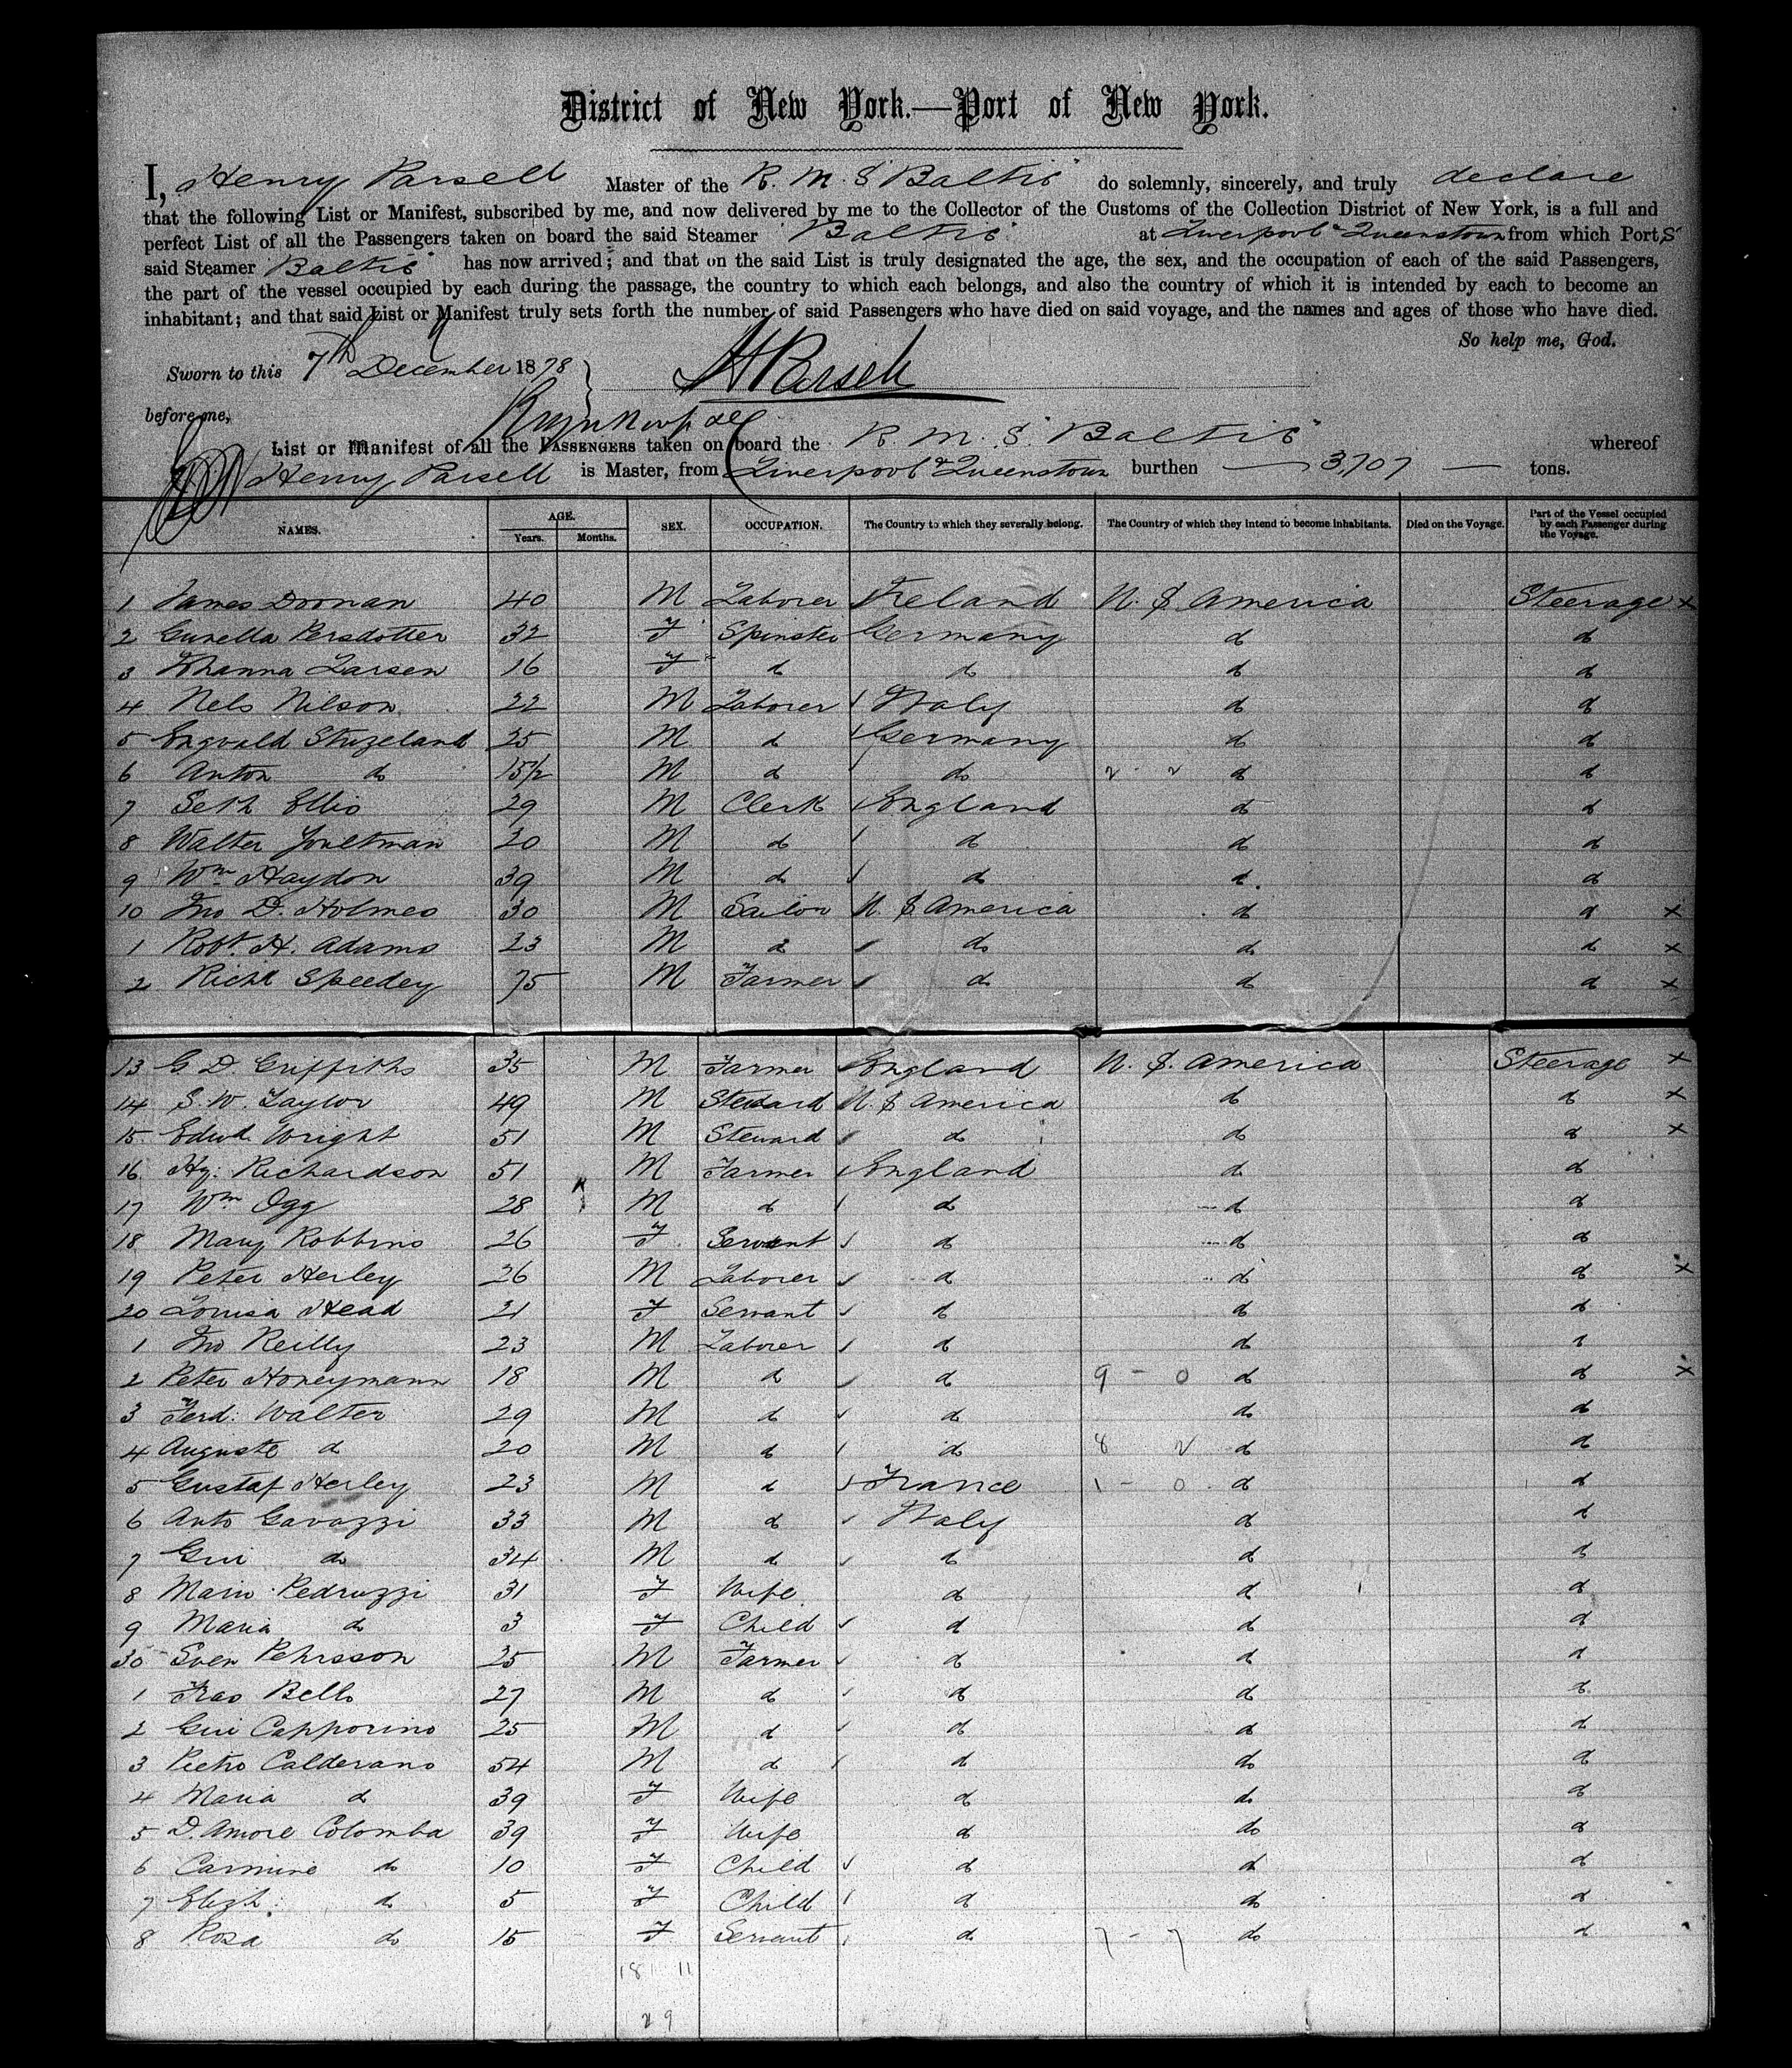 District of New York.—Port of New York.
I, Henry Parsell Master of the R. M. S "Baltic" do solemnly, sincerely, and truly declare
that the following List or Manifest, subscribed by me, and now delivered by me to the Collector of the Customs of the Collection District of New York, is a full and
perfect List of all the Passengers taken on board the said Steamer "Baltic" at Liverpool & Queenstown from which Port,s
said Steamer "Baltic" has now arrived; and that on the said List is truly designated the age, the sex, and the occupation of each of the said Passengers,
the part of the vessel occupied by each during the passage, the country to which each belongs, and also the country of which it is intended by each to become an
inhabitant; and that said List or Manifest truly sets forth the number of said Passengers who have died on said voyage, and the names and ages of those who have died.
So help me, God.
Sworn to this 7th December 1878 HParsell
before me,
List or Manifest of all the PASSENGERS taken on board the R. M. S. "Baltic" whereof
Henry Parsell is Master, from Liverpool & Queenstown burthen — 3,707 — tons.
NAMES. AGE. Years. Months. SEX. OCCUPATION. The Country to which they severally belong. The Country of which they intend to become inhabitants. Died on the Voyage. Part of the Vessel occupied by each Passenger during the Voyage.
1 James Doonan 40 M Laborer Ireland U. S. America Steerage x
2 Gunella Persdotter 32 F Spinster Germany do do
3 Johanna Larsen 16 F do do do do
4 Nels Nilson 22 M Laborer Italy do do
5 Engvald Stuzeland 25 M do Germany do do
6 Anton do 15/2 M do do do do
7 Seth Ellis 29 M Clerk England do do
8 Walter Joultman 20 M do do do do
9 Wm Haydon 39 M do do do do
10 Jno D. Holmes 30 M Sailor U. S America do do x
1 Robt H. Adams 23 M do do do do x
2 Richd Speedey 75 M Farmer do do do x
13 G. D. Griffiths 35 M Farmer England U. S. America Steerage x
14 S. W. Taylor 49 M Steward U. S America do do x
15 Edwd Wright 51 M Steward do do do x
16 Hy: Richardson 51 M Farmer England do do
17 Wm Ogg 28 M do do do do
18 Mary Robbins 26 F Servant do do do
19 Peter Herley 26 M Laborer do do do x
20 Louisa Head 21 F Servant do do do
1 Jno Reilly 23 M Laborer do do do
2 Peter Honeymann 18 M do do 9 - 0 do do x
3 Ferd: Walter 29 M do do do do
4 Auguste do 20 M do do 8 do do
5 Gustaf Herley 23 M do France 1 - 0 do do
6 Anto Gavazzi 33 M do Italy do do
7 Giu do 34 M do do do do
8 Mario Pedruzzi 31 F Wife do do do
9 Maria do 3 F Child do do do
30 Sven Pehrsson 25 M Farmer do do do
1 Frao Bello 27 M do do do do
2 Giu Capporino 25 M do do do do
3 Pietro Calderano 54 M do do do do
4 Maria do 39 F Wife do do do
5 D. Amore Colomba 39 F Wife do do do
6 Carmine do 10 F Child do do do
7 Elizh: do 5 F Child do do do
8 Rosa do 15 F Servant do 7 - 7 do do
18 11
29